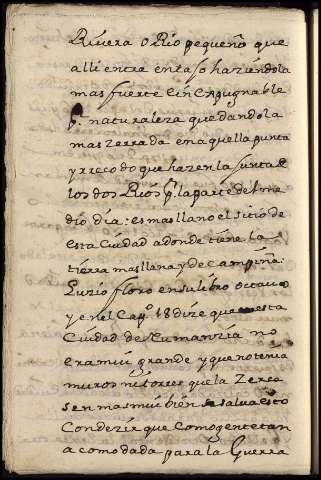 Rivera o Rio pequeño que
alli entra en tajo haziendola
mas fuerte e incapugnable
p.r naturaleza quedandola
mas zerrada en aquella punta
y rrecodo que hazen la junta de
los dos Rios p.r la parte de el me
dio dia: es mas llano el sitio de
esta Ciudad adonde tiene la
tierra mas llana y de campiña.
Luzio floro en su libro octavo
y en el Cap.o 18 dize que esta
Ciudad de Numanzia no
era mui grande y que no tenia
muros ni torres que la Zerca
sen mas mui bien se salva esto
Con dezir que Como gente tan
acomodada para la Guerra